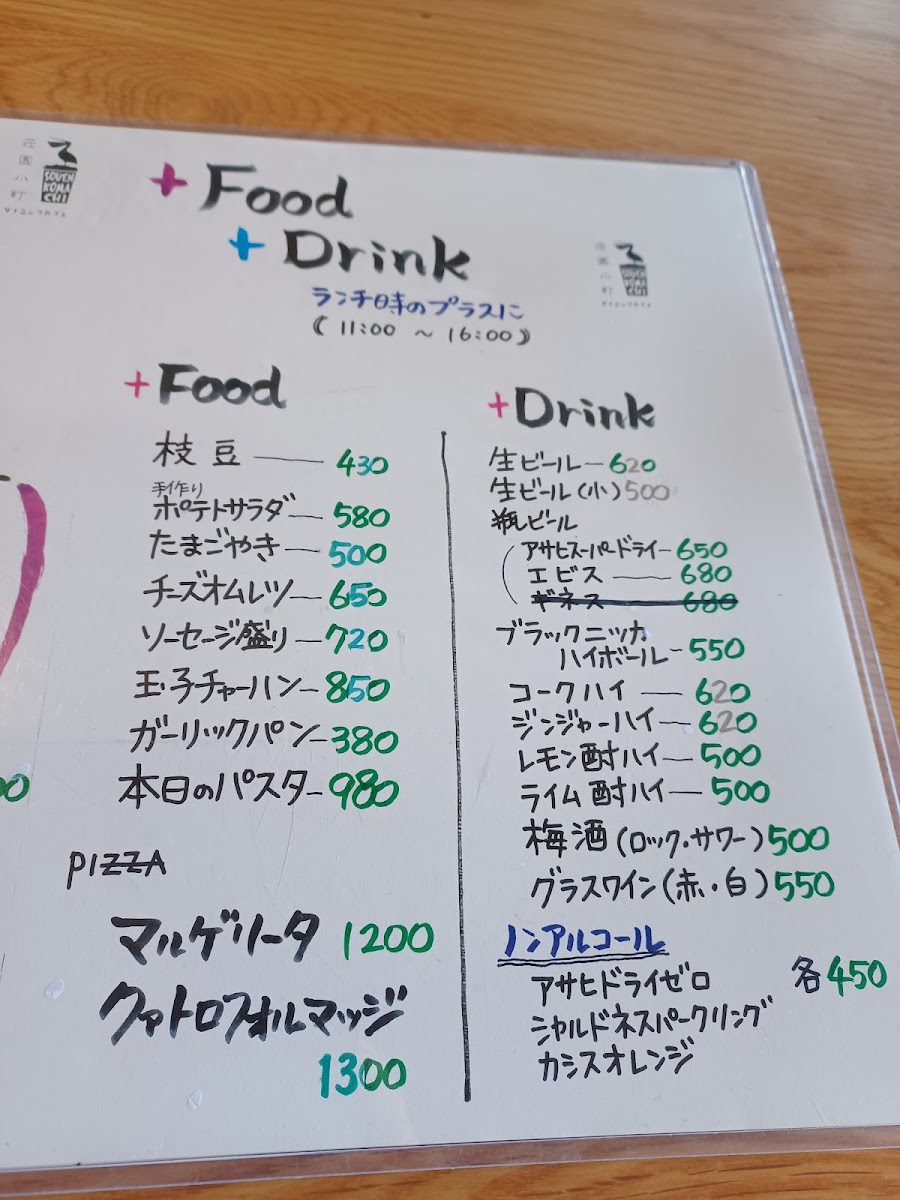 荘園小町
SOUEN
KOMA
CHI
ダイニングカフェ
+ Food
+ Drink
ランチ時のプラスに
《 11:00 ～ 16:00 》
荘園小町
SOUEN
KOMA
CHI
ダイニングカフェ
+ Food
枝豆 — 430
手作り
ポテトサラダ — 580
たまごやき — 500
チーズオムレツ — 650
ソーセージ盛り — 720
玉子チャーハン — 850
ガーリックパン — 380
本日のパスタ — 980
PIZZA
マルゲリータ 1200
クァトロフォルマッジ
1300
+ Drink
生ビール — 620
生ビール(小) 500
瓶ビール
アサヒスーパードライ — 650
エビス — 680
ギネス — 680
ブラックニッカ
ハイボール — 550
コークハイ — 620
ジンジャーハイ — 620
レモン酎ハイ — 500
ライム酎ハイ — 500
梅酒(ロック・サワー) 500
グラスワイン(赤・白) 550
ノンアルコール
アサヒドライゼロ 各450
シャルドネスパークリング
カシスオレンジ
00